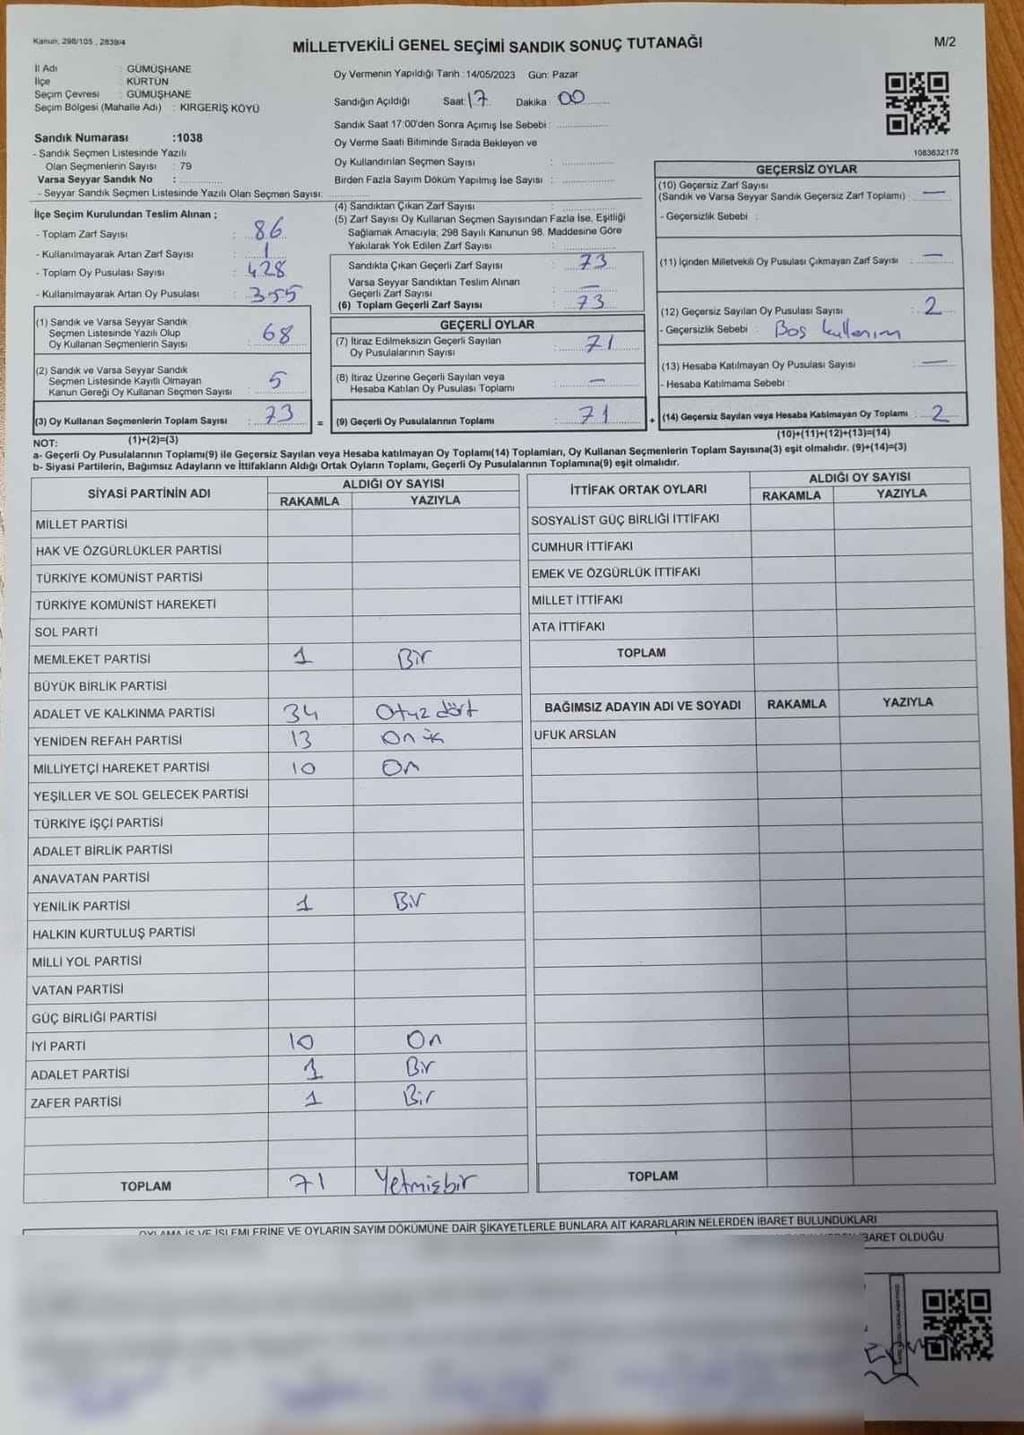 Kanun, 298/105 , 2839/4
MİLLETVEKİLİ GENEL SEÇİMİ SANDIK SONUÇ TUTANAĞI
M/2
İl Adı : GÜMÜŞHANE
İlçe : KÜRTÜN
Seçim Çevresi : GÜMÜŞHANE
Seçim Bölgesi (Mahalle Adı) : KIRGERİŞ KÖYÜ
Sandık Numarası :1038
- Sandık Seçmen Listesinde Yazılı
Olan Seçmenlerin Sayısı : 79
Varsa Seyyar Sandık No :
- Seyyar Sandık Seçmen Listesinde Yazılı Olan Seçmen Sayısı:
Oy Vermenin Yapıldığı Tarih : 14/05/2023 Gün: Pazar
Sandığın Açıldığı Saat 17 Dakika 00
Sandık Saat 17:00'den Sonra Açmış İse Sebebi :
Oy Verme Saati Bitiminde Sırada Bekleyen ve
Oy Kullandırılan Seçmen Sayısı :
Birden Fazla Sayım Döküm Yapılmış İse Sayısı :
1083632178
İlçe Seçim Kurulundan Teslim Alınan ;
- Toplam Zarf Sayısı : 86
- Kullanılmayarak Artan Zarf Sayısı : 1
- Toplam Oy Pusulası Sayısı : 428
- Kullanılmayarak Artan Oy Pusulası : 355
(1) Sandık ve Varsa Seyyar Sandık
Seçmen Listesinde Yazılı Olup
Oy Kullanan Seçmenlerin Sayısı : 68
(2) Sandık ve Varsa Seyyar Sandık
Seçmen Listesinde Kayıtlı Olmayan
Kanun Gereği Oy Kullanan Seçmen Sayısı : 5
(3) Oy Kullanan Seçmenlerin Toplam Sayısı : 73
(1)+(2)=(3)
(4) Sandıktan Çıkan Zarf Sayısı :
(5) Zarf Sayısı Oy Kullanan Seçmen Sayısından Fazla İse, Eşitliği
Sağlamak Amacıyla; 298 Sayılı Kanunun 98. Maddesine Göre
Yakılarak Yok Edilen Zarf Sayısı :
Sandıkta Çıkan Geçerli Zarf Sayısı : 73
Varsa Seyyar Sandıktan Teslim Alınan
Geçerli Zarf Sayısı : —
(6) Toplam Geçerli Zarf Sayısı : 73
GEÇERLİ OYLAR
(7) İtiraz Edilmeksizin Geçerli Sayılan
Oy Pusulalarının Sayısı : 71
(8) İtiraz Üzerine Geçerli Sayılan veya
Hesaba Katılan Oy Pusulası Toplamı : —
= (9) Geçerli Oy Pusulalarının Toplamı : 71
GEÇERSİZ OYLAR
(10) Geçersiz Zarf Sayısı
(Sandık ve Varsa Seyyar Sandık Geçersiz Zarf Toplamı) : —
- Geçersizlik Sebebi :
(11) İçinden Milletvekili Oy Pusulası Çıkmayan Zarf Sayısı : —
(12) Geçersiz Sayılan Oy Pusulası Sayısı : 2
- Geçersizlik Sebebi : Boş kullanım
(13) Hesaba Katılmayan Oy Pusulası Sayısı : —
- Hesaba Katılmama Sebebi :
+ (14) Geçersiz Sayılan veya Hesaba Katılmayan Oy Toplamı : 2
(10)+(11)+(12)+(13)=(14)
NOT:
a- Geçerli Oy Pusulalarının Toplamı(9) ile Geçersiz Sayılan veya Hesaba katılmayan Oy Toplamı(14) Toplamları, Oy Kullanan Seçmenlerin Toplam Sayısına(3) eşit olmalıdır. (9)+(14)=(3)
b- Siyasi Partilerin, Bağımsız Adayların ve İttifakların Aldığı Ortak Oyların Toplamı, Geçerli Oy Pusulalarının Toplamına(9) eşit olmalıdır.
SİYASİ PARTİNİN ADI ALDIĞI OY SAYISI
RAKAMLA YAZIYLA
MİLLET PARTİSİ
HAK VE ÖZGÜRLÜKLER PARTİSİ
TÜRKİYE KOMÜNİST PARTİSİ
TÜRKİYE KOMÜNİST HAREKETİ
SOL PARTİ
MEMLEKET PARTİSİ 1 Bir
BÜYÜK BİRLİK PARTİSİ
ADALET VE KALKINMA PARTİSİ 34 Otuz dört
YENİDEN REFAH PARTİSİ 13 On
MİLLİYETÇİ HAREKET PARTİSİ 10 On
YEŞİLLER VE SOL GELECEK PARTİSİ
TÜRKİYE İŞÇİ PARTİSİ
ADALET BİRLİK PARTİSİ
ANAVATAN PARTİSİ
YENİLİK PARTİSİ 1 Bir
HALKIN KURTULUŞ PARTİSİ
MİLLİ YOL PARTİSİ
VATAN PARTİSİ
GÜÇ BİRLİĞİ PARTİSİ
İYİ PARTİ 10 On
ADALET PARTİSİ 1 Bir
ZAFER PARTİSİ 1 Bir
TOPLAM 71 Yetmişbir
İTTİFAK ORTAK OYLARI ALDIĞI OY SAYISI
RAKAMLA YAZIYLA
SOSYALİST GÜÇ BİRLİĞİ İTTİFAKI
CUMHUR İTTİFAKI
EMEK VE ÖZGÜRLÜK İTTİFAKI
MİLLET İTTİFAKI
ATA İTTİFAKI
TOPLAM
BAĞIMSIZ ADAYIN ADI VE SOYADI RAKAMLA YAZIYLA
UFUK ARSLAN
TOPLAM
OYLAMA İŞ VE İŞLEMLERİNE VE OYLARIN SAYIM DÖKÜMÜNE DAİR ŞİKAYETLERLE BUNLARA AİT KARARLARIN NELERDEN İBARET BULUNDUKLARI
İBARET OLDUĞU